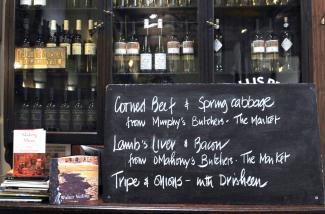 Corned Beef & Spring cabbage
from Murphy's Butchers - The Market
Lamb's Liver & Bacon
from O'Mahony's Butchers - The Market
Tripe & Onions - with Drisheen